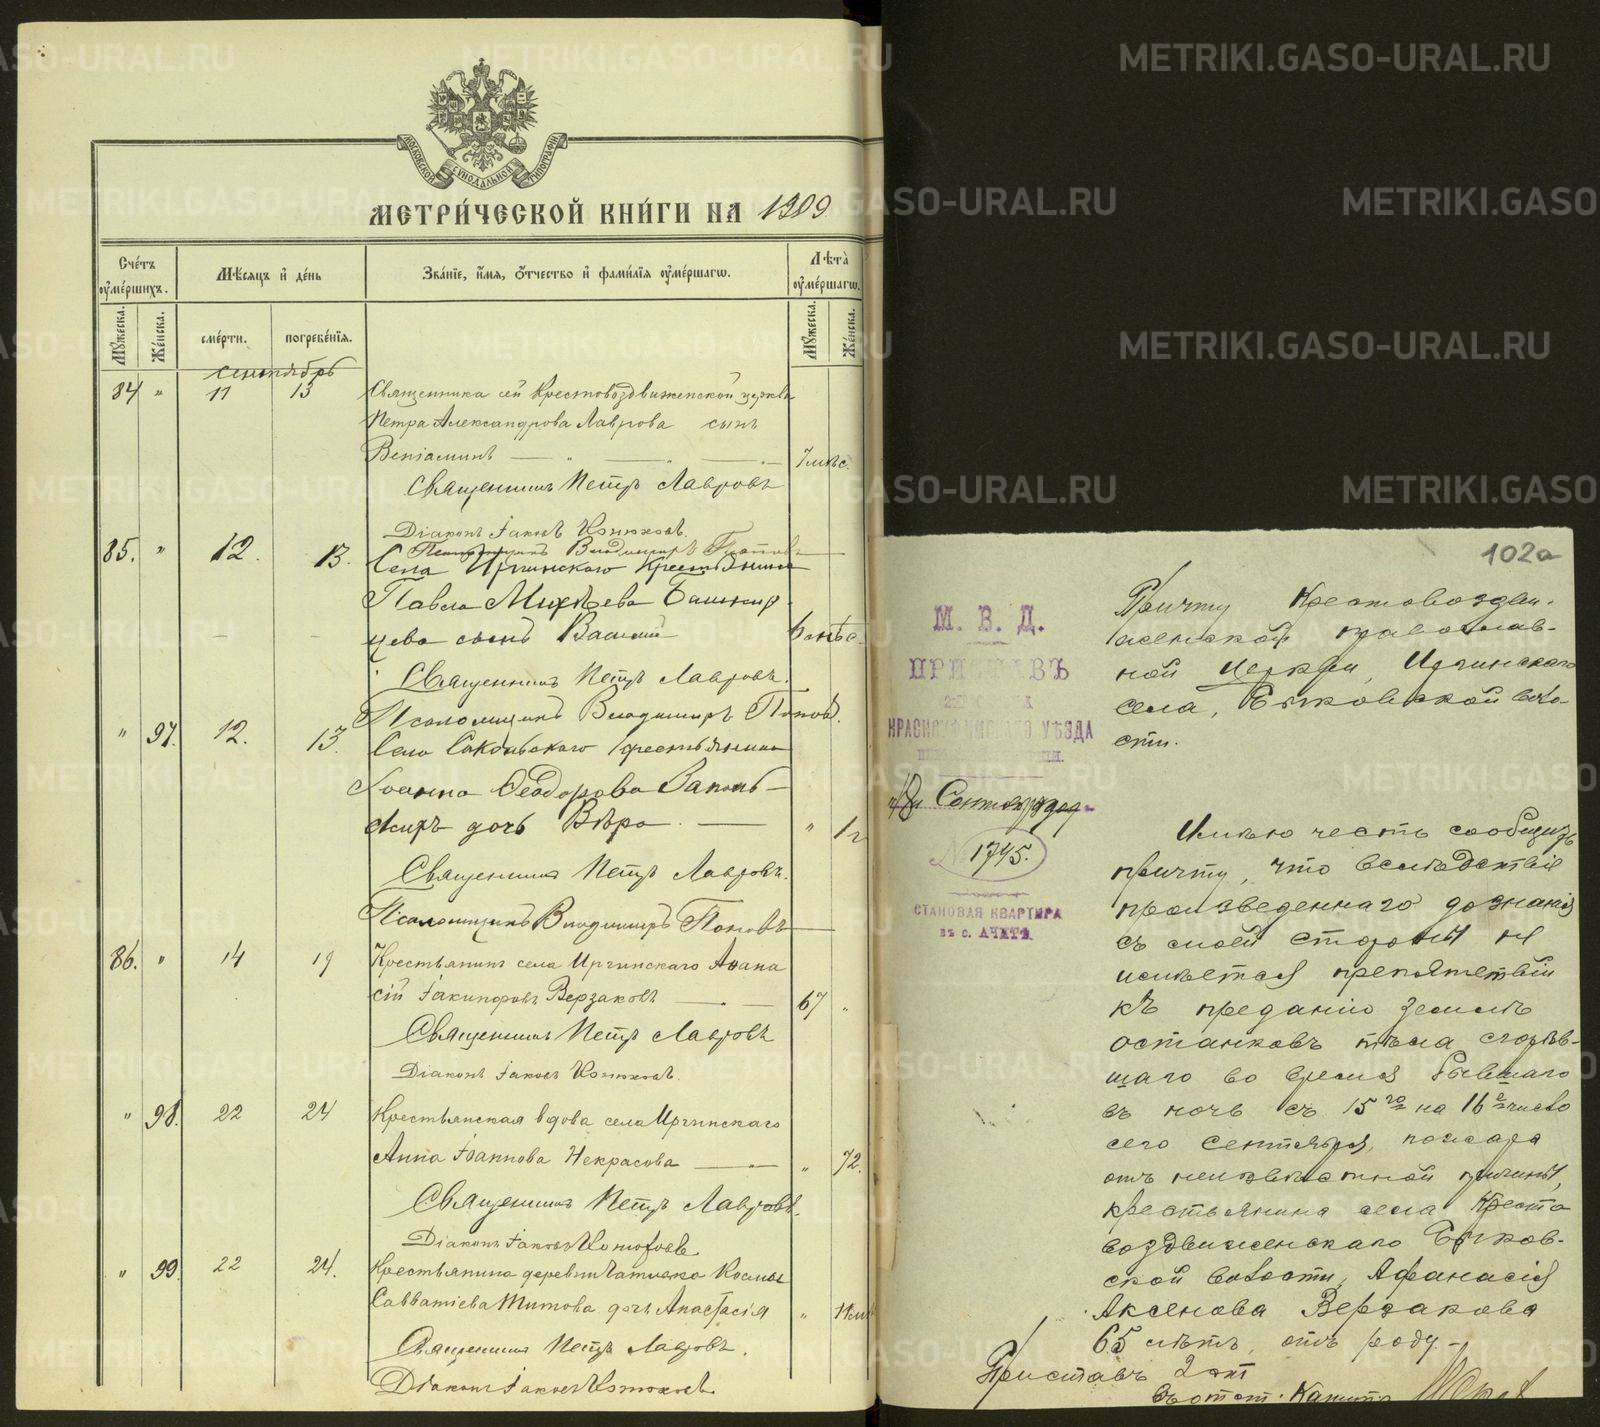 METRIKI.GASO-URAL.RU
МОСКОВСКОЙ СѴНОДАЛЬНОЙ ТИПОГРАФІИ
МЕТРИ́ЧЕСКОЙ КНИ́ГИ НА 1909
Сче́тъ ᲂу҆ме́ршихъ.
Мѣ́сяцъ и҆ де́нь
Зва́нїе, и҆́мя, ѻ҆́тчество и҆ фами́лїя ᲂу҆ме́ршагѡ.
Лѣ́та ᲂу҆ме́ршагѡ.
Мꙋ́жеска.
Же́нска.
сме́рти.
погребе́нїя.
Мꙋ́жеска.
Же́нска.
Сентябрь
84 " 11 13 Священника сей Крестовоздвиженской церкви
Петра Александрова Лаврова сынъ
Веніаминъ 7 мѣс.
Священникъ Петръ Лавровъ
Діаконъ Іаковъ
Владимиръ Поповъ
85. " 12. 13. Села Иргинскаго крестьянина
Павла Михѣева Башкир
цева сынъ 6
Священникъ Петръ Лавровъ.
Псаломщикъ Владимиръ Поповъ.
" 97. 12. 13. Села Сокольскаго крестьянина
Іоанна Ѳеодорова
дочь Вѣра " 1 г
Священникъ Петръ Лавровъ.
Псаломщикъ Владимиръ Поповъ
86. " 14 19 Крестьянинъ села Иргинскаго Аѳана
сій Іакинфовъ Верзаковъ 67 "
Священникъ Петръ Лавровъ
Діаконъ Іаковъ
" 98. 22 24 Крестьянская вдова села Иргинскаго
Анна Іоаннова Некрасова " 72.
Священникъ Петръ Лавровъ.
Діаконъ Іаковъ
" 99. 22 24. Крестьянина деревни Космы
Савватіева Титова дочь Анастасія "
Священникъ Петръ Лавровъ.
Діаконъ Іаковъ
102а
М. В. Д.
ПРИСТАВЪ
КРАСНОУФИМСКАГО УѢЗДА
18 Сентября
№ 1745.
СТАНОВАЯ КВАРТИРА
въ с. АЧИТѢ
Причту Крестовоздви-
женской православ-
ной церкви, Иргинскаго
села, Быковской воло-
сти.
Имѣю честь сообщить
причту, что вслѣдствіе
произведеннаго дознанія
съ моей стороны не
имѣется препятствій
къ преданію землѣ
останковъ тѣла сгорѣв-
шаго во время бывшаго
въ ночь съ 15го на 16е число
сего Сентября, пожара
отъ неизвѣстной причины,
крестьянина села Кресто
воздвиженскаго Быков-
ской волости, Афанасія
Аксенова Верзакова
65 лѣтъ, отъ роду.
Приставъ 2 ст